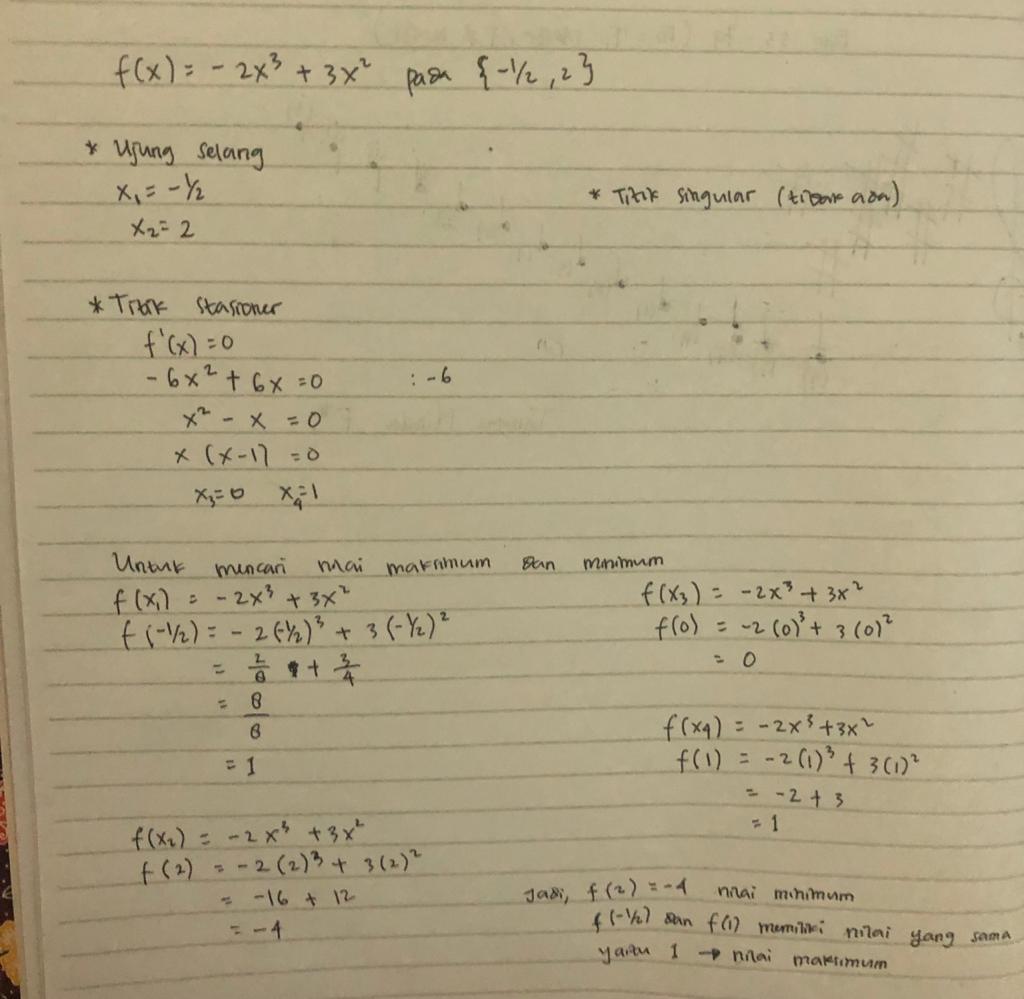 f(x) = -2x³ + 3x² pada {-1/2, 2}
* Ujung selang
x₁ = -1/2
x₂ = 2
* Titik singular (tidak ada)
* Titik stasioner
f'(x) = 0
-6x² + 6x = 0 : -6
x² - x = 0
x (x-1) = 0
x₃ = 0 x₄ = 1
Untuk mencari nilai maksimum dan minimum
f(x₁) = -2x³ + 3x²
f(-1/2) = -2(-1/2)³ + 3(-1/2)²
= 2/8 + 3/4
= 8/8
= 1
f(x₂) = -2x³ + 3x²
f(2) = -2(2)³ + 3(2)²
= -16 + 12
= -4
f(x₃) = -2x³ + 3x²
f(0) = -2(0)³ + 3(0)²
= 0
f(x₄) = -2x³ + 3x²
f(1) = -2(1)³ + 3(1)²
= -2 + 3
= 1
Jadi, f(2) = -4 nilai minimum
f(-1/2) dan f(1) memiliki nilai yang sama
yaitu 1 → nilai maksimum